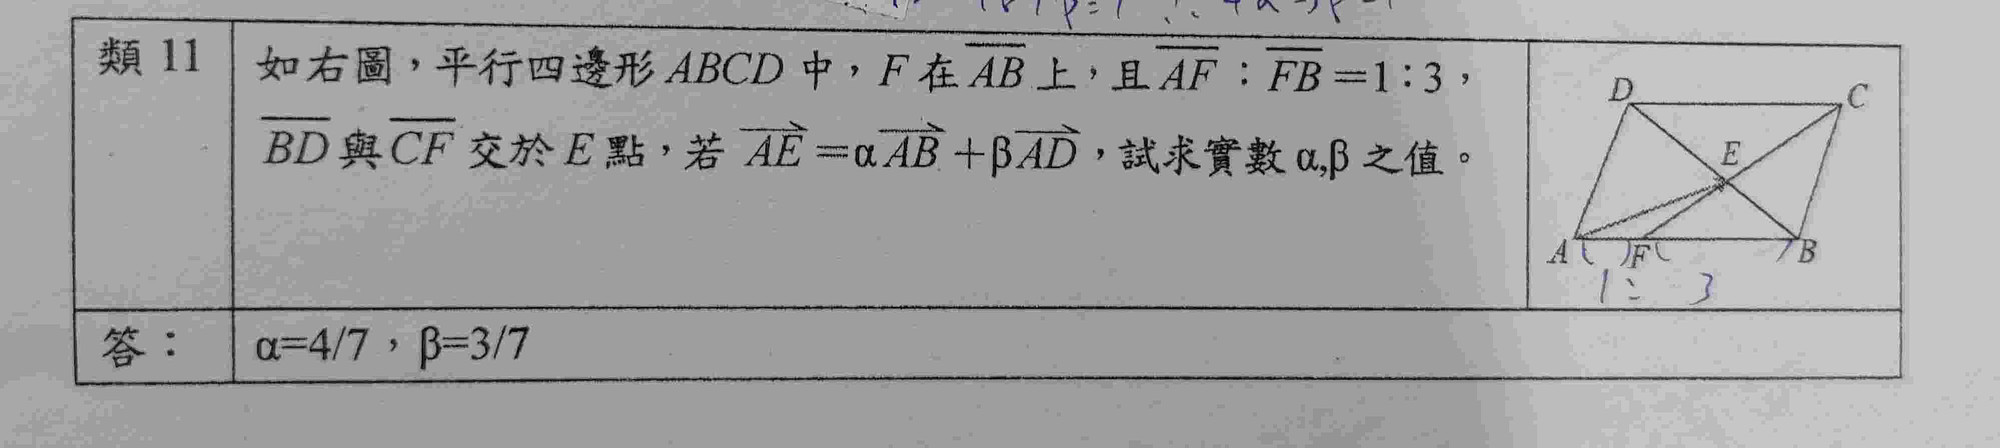 類 11
如右圖，平行四邊形 ABCD 中，F 在 AB 上，且 AF：FB＝1：3，
BD 與 CF 交於 E 點，若 AE＝αAB＋βAD，試求實數 α,β 之值。
D C
E
A F B
1 : 3
答：
α=4/7，β=3/7